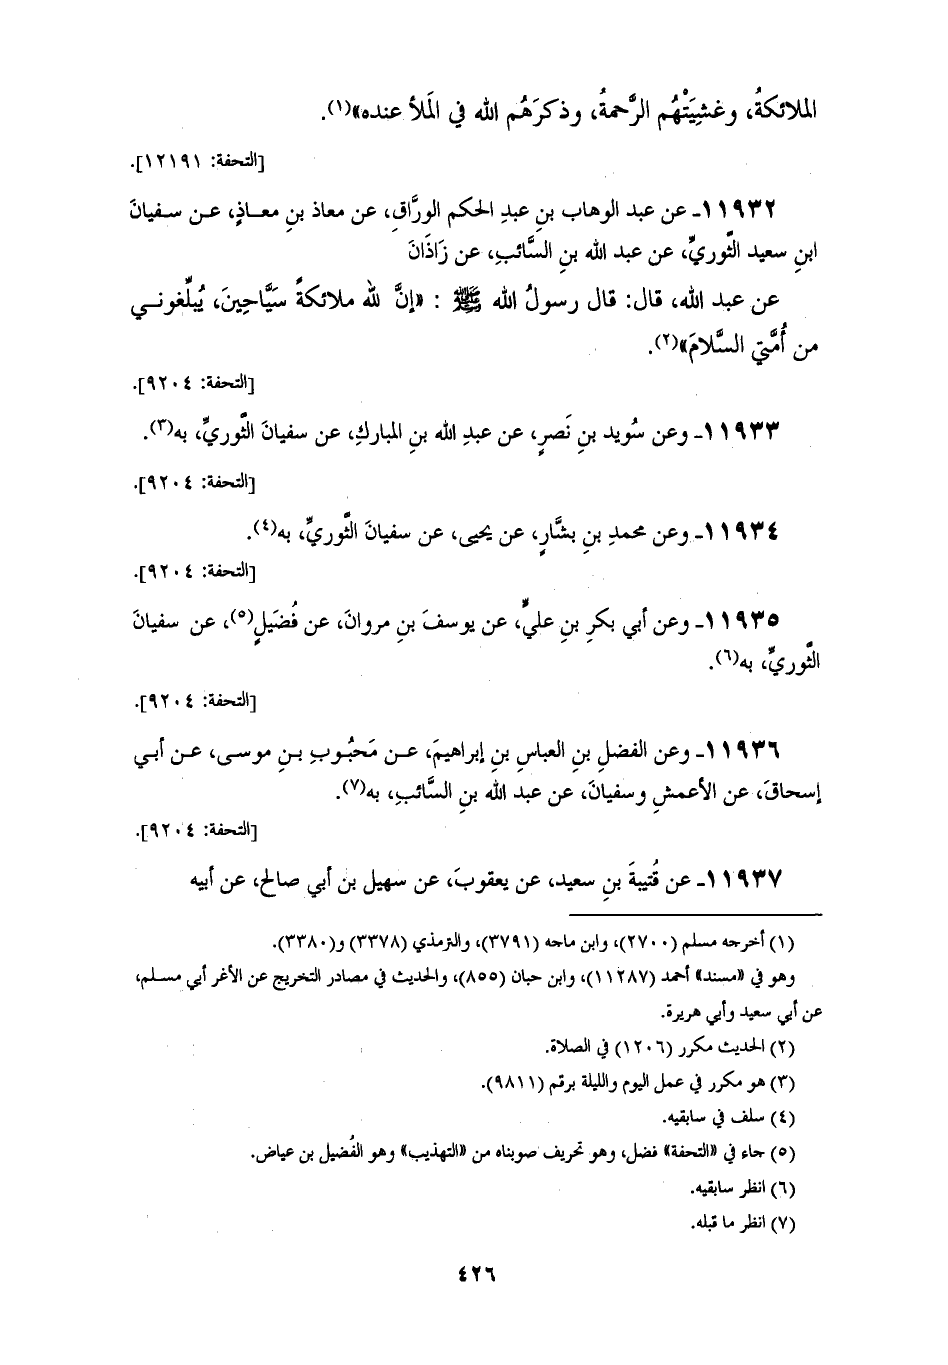 الملائكةُ، وغشِيَتْهُم الرَّحمةُ، وذكرَهُم الله في المَلأ عنده»(١).
[التحفة: ١٢١٩١].
١١٩٣٢ـ عن عبد الوهاب بنِ عبدِ الحكم الورَّاقِ، عن معاذ بنِ معـاذٍ، عـن سـفيانَ
ابنِ سعيد الثَّوريِّ، عن عبد الله بنِ السَّائبِ، عن زَاذَانَ
عن عبد الله، قال: قال رسولُ الله ﷺ : «إنَّ لله ملائكةً سَيَّاحِينَ، يُبلِّغونـي
من أُمَّتي السَّلامَ»(٢).
[التحفة: ٩٢٠٤].
١١٩٣٣ـ وعن سُويد بنِ نَصرٍ، عن عبدِ الله بنِ المباركِ، عن سفيانَ الثَّوريِّ، به(٣).
[التحفة: ٩٢٠٤].
١١٩٣٤ـ وعن محمدِ بنِ بشَّارٍ، عن يحيى، عن سفيانَ الثَّوريِّ، به(٤).
[التحفة: ٩٢٠٤].
١١٩٣٥ـ وعن أبي بكرِ بنِ عليٍّ، عن يوسفَ بنِ مروانَ، عن فُضَيلٍ(٥)، عن سفيانَ
الثَّوريِّ، به(٦).
[التحفة: ٩٢٠٤].
١١٩٣٦ـ وعن الفضلِ بنِ العباسِ بنِ إبراهيمَ، عـن مَحبُوبِ بـنِ موسـى، عـن أبـي
إسحاقَ، عن الأعمشِ وسفيانَ، عن عبد الله بنِ السَّائبِ، به(٧).
[التحفة: ٩٢٠٤].
١١٩٣٧ـ عن قُتيبةَ بنِ سعيد، عن يعقوبَ، عن سهيل بن أبي صالح، عن أبيه
(١) أخرجه مسلم (٢٧٠٠)، وابن ماجه (٣٧٩١)، والترمذي (٣٣٧٨) و(٣٣٨٠).
وهو في «مسند» أحمد (١١٢٨٧)، وابن حبان (٨٥٥)، والحديث في مصادر التخريج عن الأغر أبي مسـلم،
عن أبي سعيد وأبي هريرة.
(٢) الحديث مكرر (١٢٠٦) في الصلاة.
(٣) هو مكرر في عمل اليوم والليلة برقم (٩٨١١).
(٤) سلف في سابقيه.
(٥) جاء في «التحفة» فضل، وهو تحريف صوبناه من «التهذيب» وهو الفُضيل بن عياض.
(٦) انظر سابقيه.
(٧) انظر ما قبله.
٤٢٦